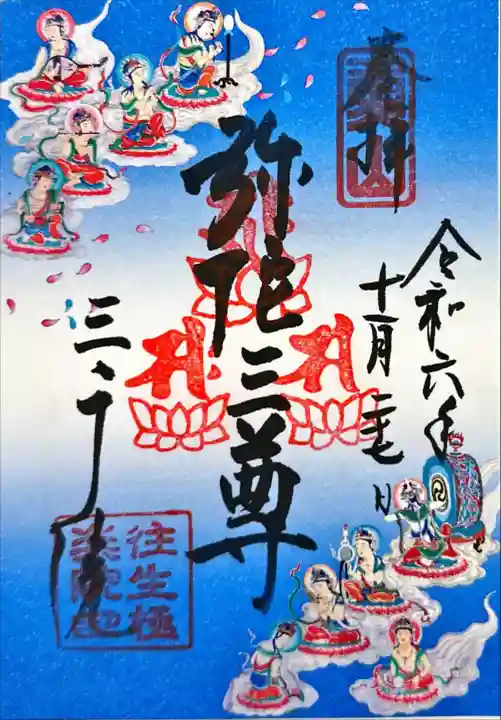 奉拝
令和六年
十一月 日
弥陀三尊
三千院
往生極
楽院印